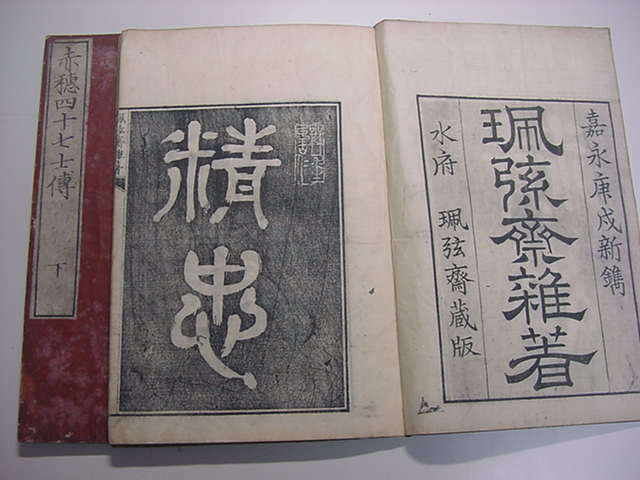 嘉永庚戌新鐫
珮弦齋雜著
水府 珮弦齋蔵版
精忠
赤穂四十七士傳
下